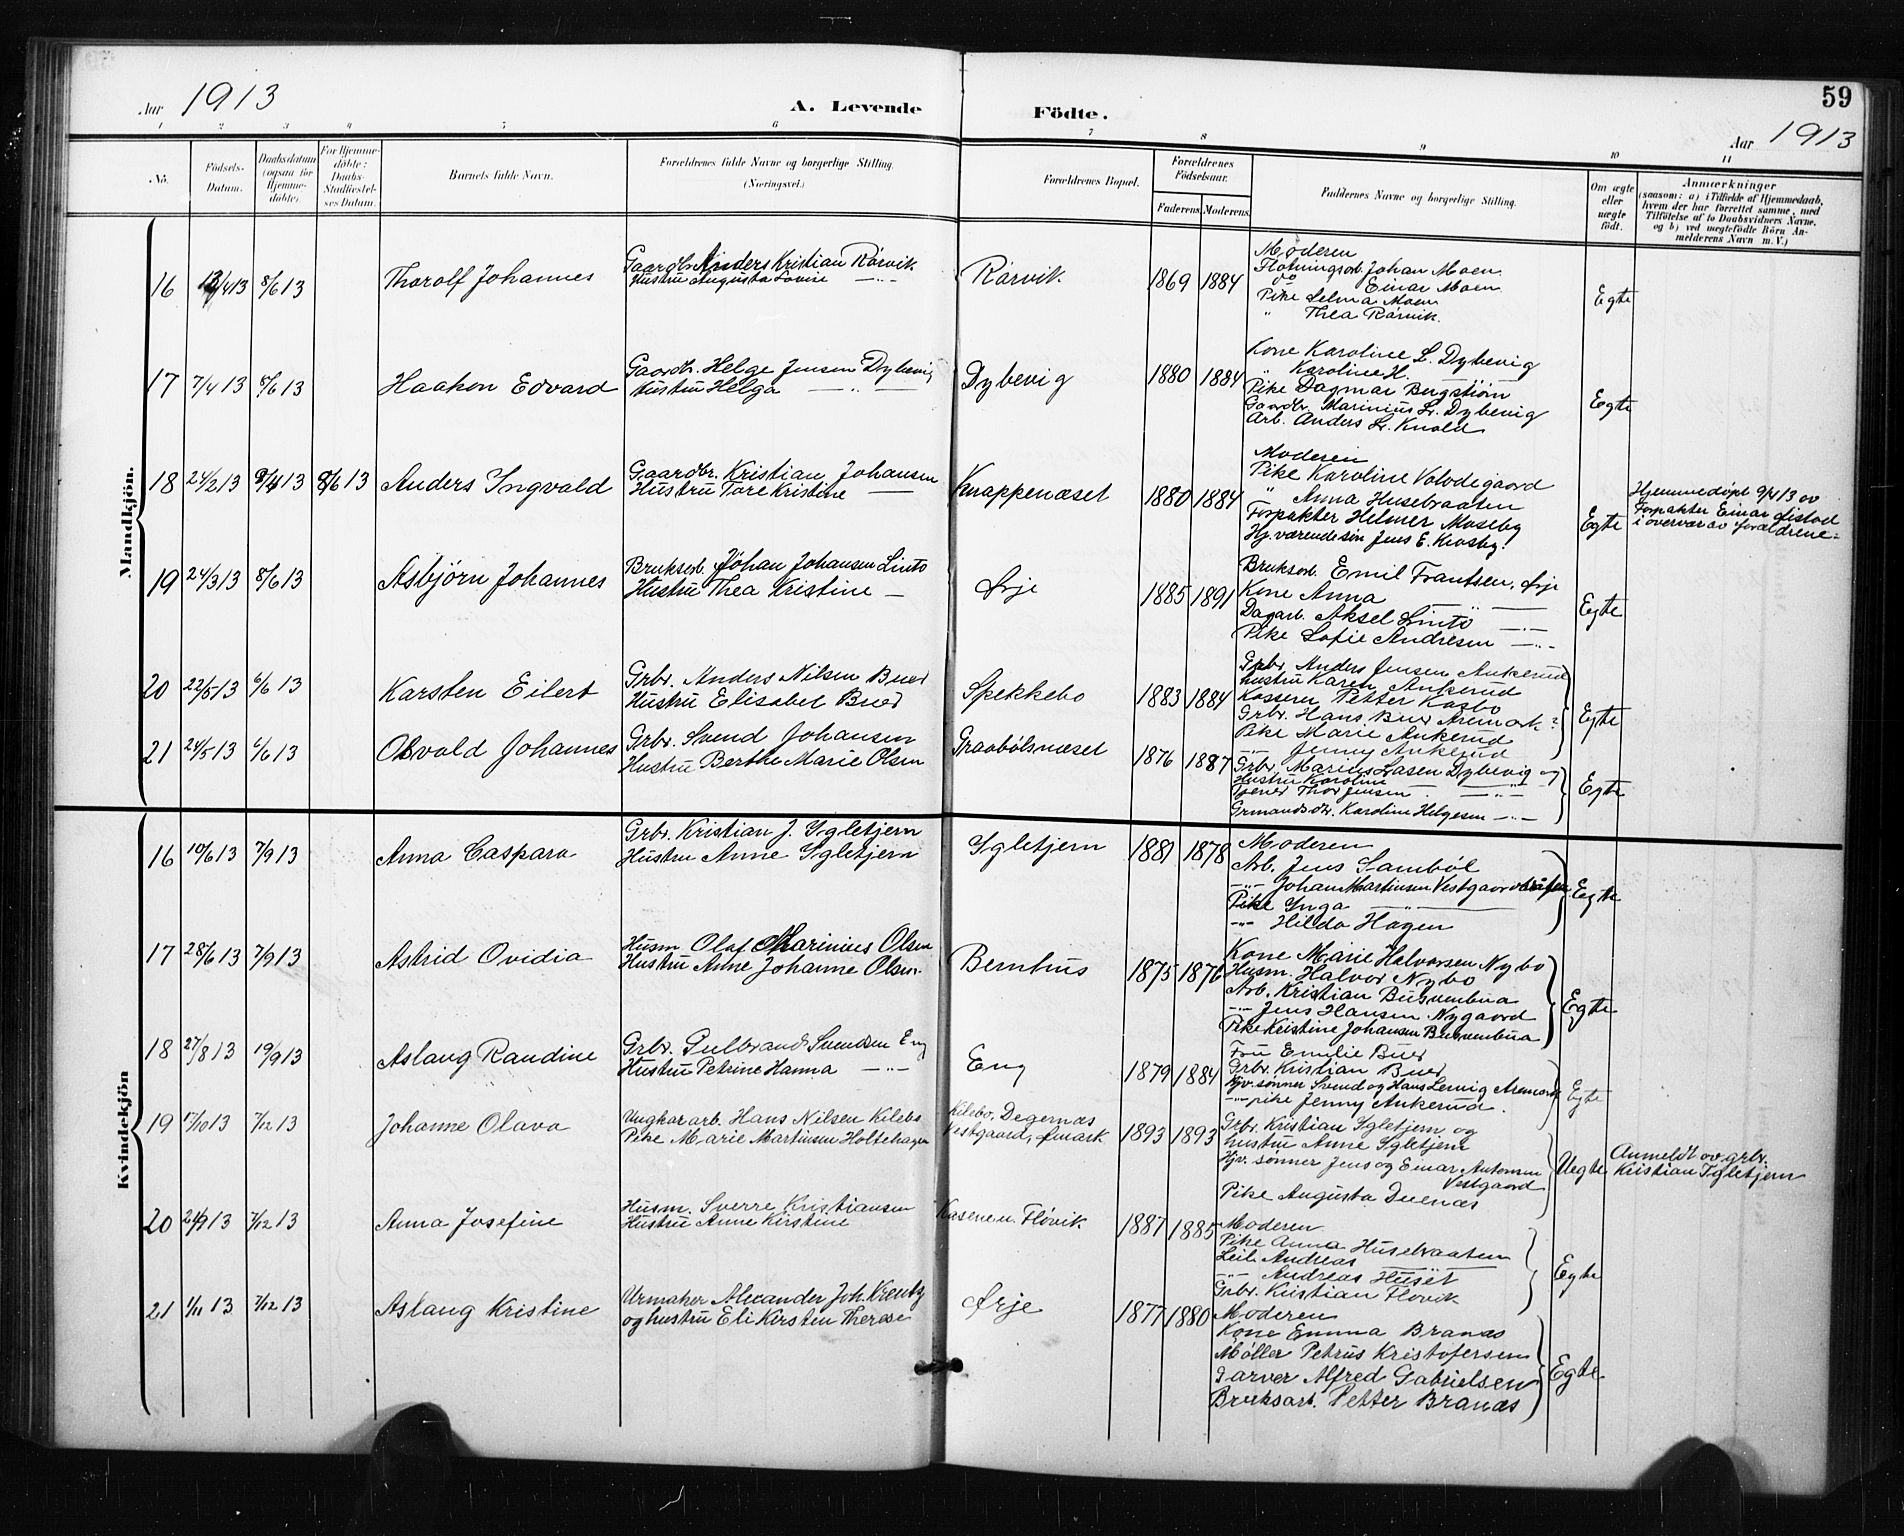 59
Aar 1913
A. Levende Födte.
Aar 1913
1 2 3 4 5 6 7 8 9 10 11
No.
Födsels-Datum.
Daabsdatum (ogsaa for Hjemmedöbte).
For Hjemmedöbte: Daabs-Stadfæstelses Datum.
Barnets fulde Navn.
Forældrenes fulde Navne og borgerlige Stilling. (Næringsvei.)
Forældrenes Bopæl.
Forældrenes Födselsaar.
Faderens. Moderens.
Faddernes Navne og borgerlige Stilling.
Om ægte eller uægte födt.
Anmærkninger
(saasom: a) i Tilfælde af Hjemmedaab,
hvem der har forrettet samme, med
Tilföielse af to Daabsvidners Navne,
og b) ved uægtefödte Börn An-
melderens Navn m. V.)
Mandkjön.
16 /4 13 8/6 13 Thorolf Johannes
Gaardbr. Anders Kristian Rörvik
Hustru Augusta Lovise —"—
Rörvik 1869 1884
Moderen
Flötningsarb. Johan Moen
do Einar Moen
Pike Selma Moen
" Thea Rörvik.
Egte
17 7/4 13 8/6 13 Haakon Edvard
Gaardb. Helge Jensen Dybevig
Hustru Helga —"—
Dybevig 1880 1884
Kone Karoline L. Dybevig
" Karoline H.
Pike Dagmar Bergström
Gaardbr. Marinius L. Dybevig
Arb. Anders L. Knold
Egte
18 24/2 13 9/4 13 8/6 13 Anders Ingvald
Gaardbr. Kristian Johansen
Hustru Tore Kristine —
Knappenæset 1880 1884
Moderen
Pike Karoline
" Anna Husebraaten
Forpakter Helmer Moseby
Hj. værende søn Jens E. Krosby.
Egte
Hjemmedøpt 9/4 13 av
Forpakter Einar
i overvær av forældrene.
19 24/3 13 8/6 13 Asbjørn Johannes
Bruksarb. Johan Johansen Linto
Hustru Thea Kristine —
Ørje 1885 1891
Bruksarb. Emil Frantsen, Ørje
Kone Anna —"—
Dagarb. Aksel Linto —"—
Pike Sofie Andresen —"—
Egte
20 22/5 13 6/6 13 Karsten Eilert
Grbr. Anders Nilsen Buer
Hustru Elisabet Buer
Spekkebo 1883 1884
Grbr. Anders Jensen Ankerud
hustru Karen Ankerud
Kasserer Petter Kasbo
Grbr. Hans Buer Aremark
Pike Marie Ankerud
—"— Jenny Ankerud
Egte
21 24/5 13 6/6 13 Osvald Johannes
Grbr. Svend Johansen
Hustru Berthe Marie Olsen
Graabölsnæset 1876 1887
Grbr. Marius Lasen Dybevig og
Hustru Karoline —"—
Tjener Thor Jensen —"—
Grmandsdtr. Karoline Helgesen —"—
Egte
Kvindekjön
16 10/6 13 7/9 13 Anna Caspara
Grbr. Kristian J. Igletjern
Hustru Anne Igletjern
Igletjern 1881 1878
Moderen
Arb. Jens Sambøl
—"— Johan Martinsen
Pike Inga —"—
—"— Hilda Hagen
Egte
17 28/6 13 7/9 13 Astrid Ovidia
Husm. Olaf Marinius Olsen
Hustru Anne Johanne Olsen
Bernhus 1875 1876
Kone Marie Halvorsen Nybo
Husm. Halvor Nybo
Arb. Kristian Busvenbua
—"— Jens Hansen Nygaard
Pike Kristine Johansen Busvenbua
Egte
18 27/8 13 19/9 13 Aslaug Randine
Grbr. Gulbrand Svendsen Eng
Hustru Petrine Hanna —"—
Eng 1879 1884
Fru Emilie Buer
Grbr. Kristian Buer
Hjv. sønner Svend og Hans Lervig Aremark
—"— pike Jenny Ankerud.
Egte
19 17/10 13 7/12 13 Johanne Olava
Ungkar arb. Hans Nilsen Kilebo
Pike Marie Martinsen Holtehagen
Kilebo, Degernæs
Vestgaard, Ømark
1893 1893
Grbr. Kristian Igletjern og
hustru Anne Igletjern
Hjv. sønner Jens og Einar Antonsen
Vestgaard
Pike Augusta Duenæs
Uegte
Anmeldt av grbr.
Kristian Igletjern
20 24/9 13 7/12 13 Anna Josefine
Husm. Sverre Kristiansen
Hustru Anne Kirstine
Kasene u. Fløvik 1887 1885
Moderen
Pike Anna Husebraaten
Leil. Andreas
—"— Andreas Huset
Grbr. Kristian Fløvik
Egte
21 1/11 13 7/12 13 Aslaug Kristine
Urmaker Alexander Joh. Krentz
og hustru Eli Kirsten Therese
Ørje 1877 1880
Moderen
Kone Emma Branæs
Møller Petrus Kristofersen
Garver Alfred Gabrielsen
Bruksarb. Petter Branæs
Egte